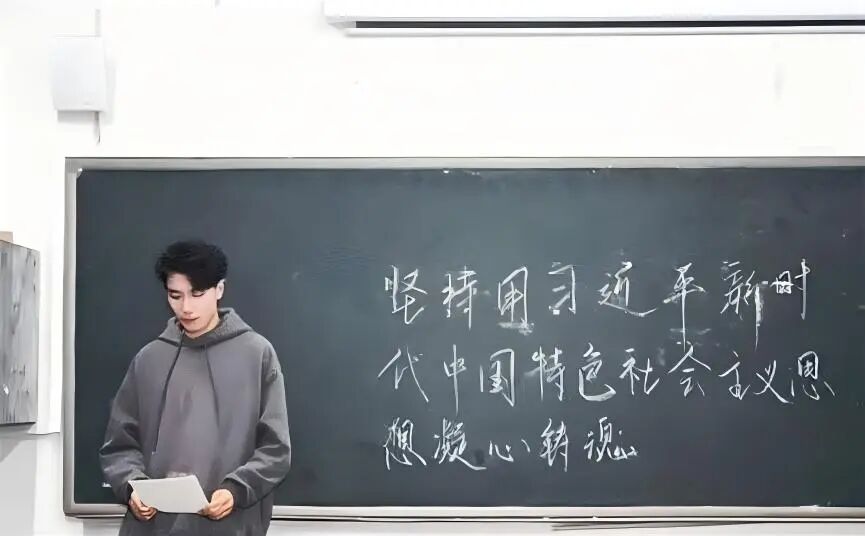 坚持用习近平新时
代中国特色社会主义思
想凝心铸魂